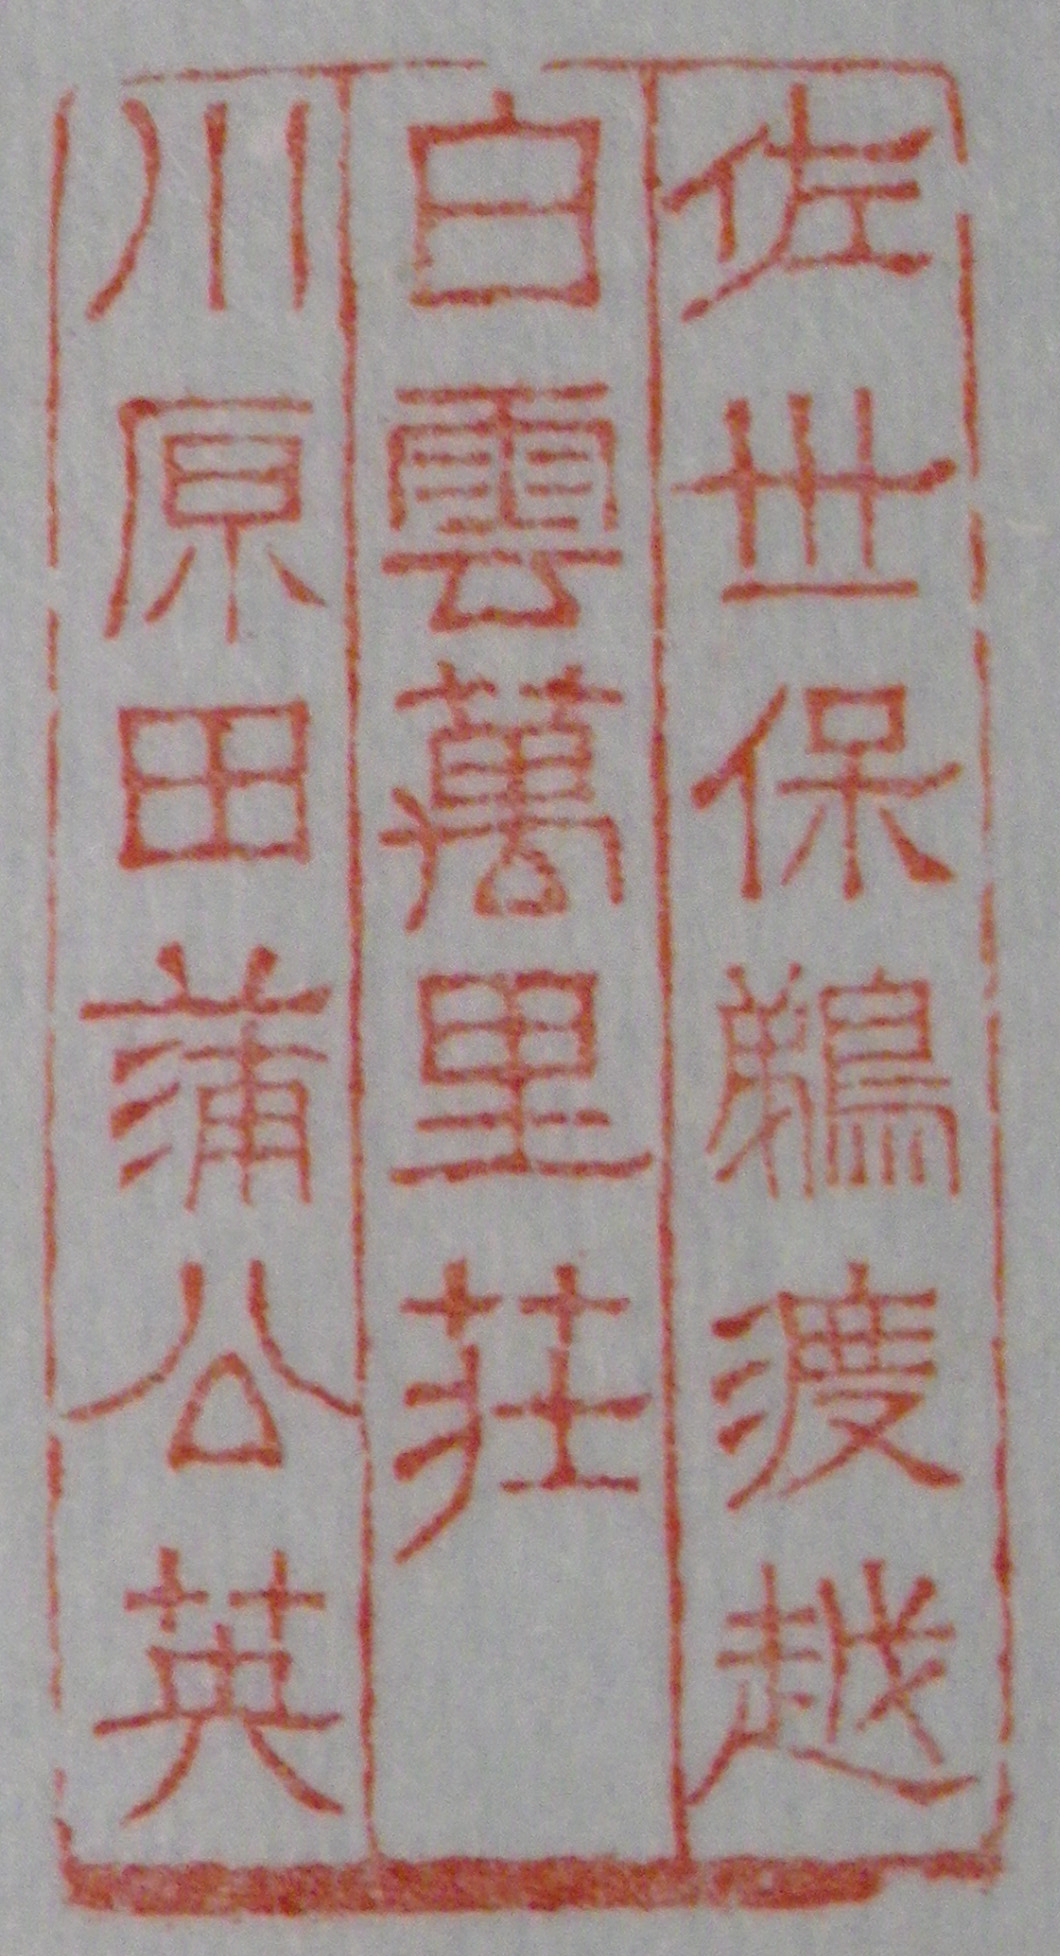 佐世保鵜渡越
白雲萬里荘
川原田蒲公英